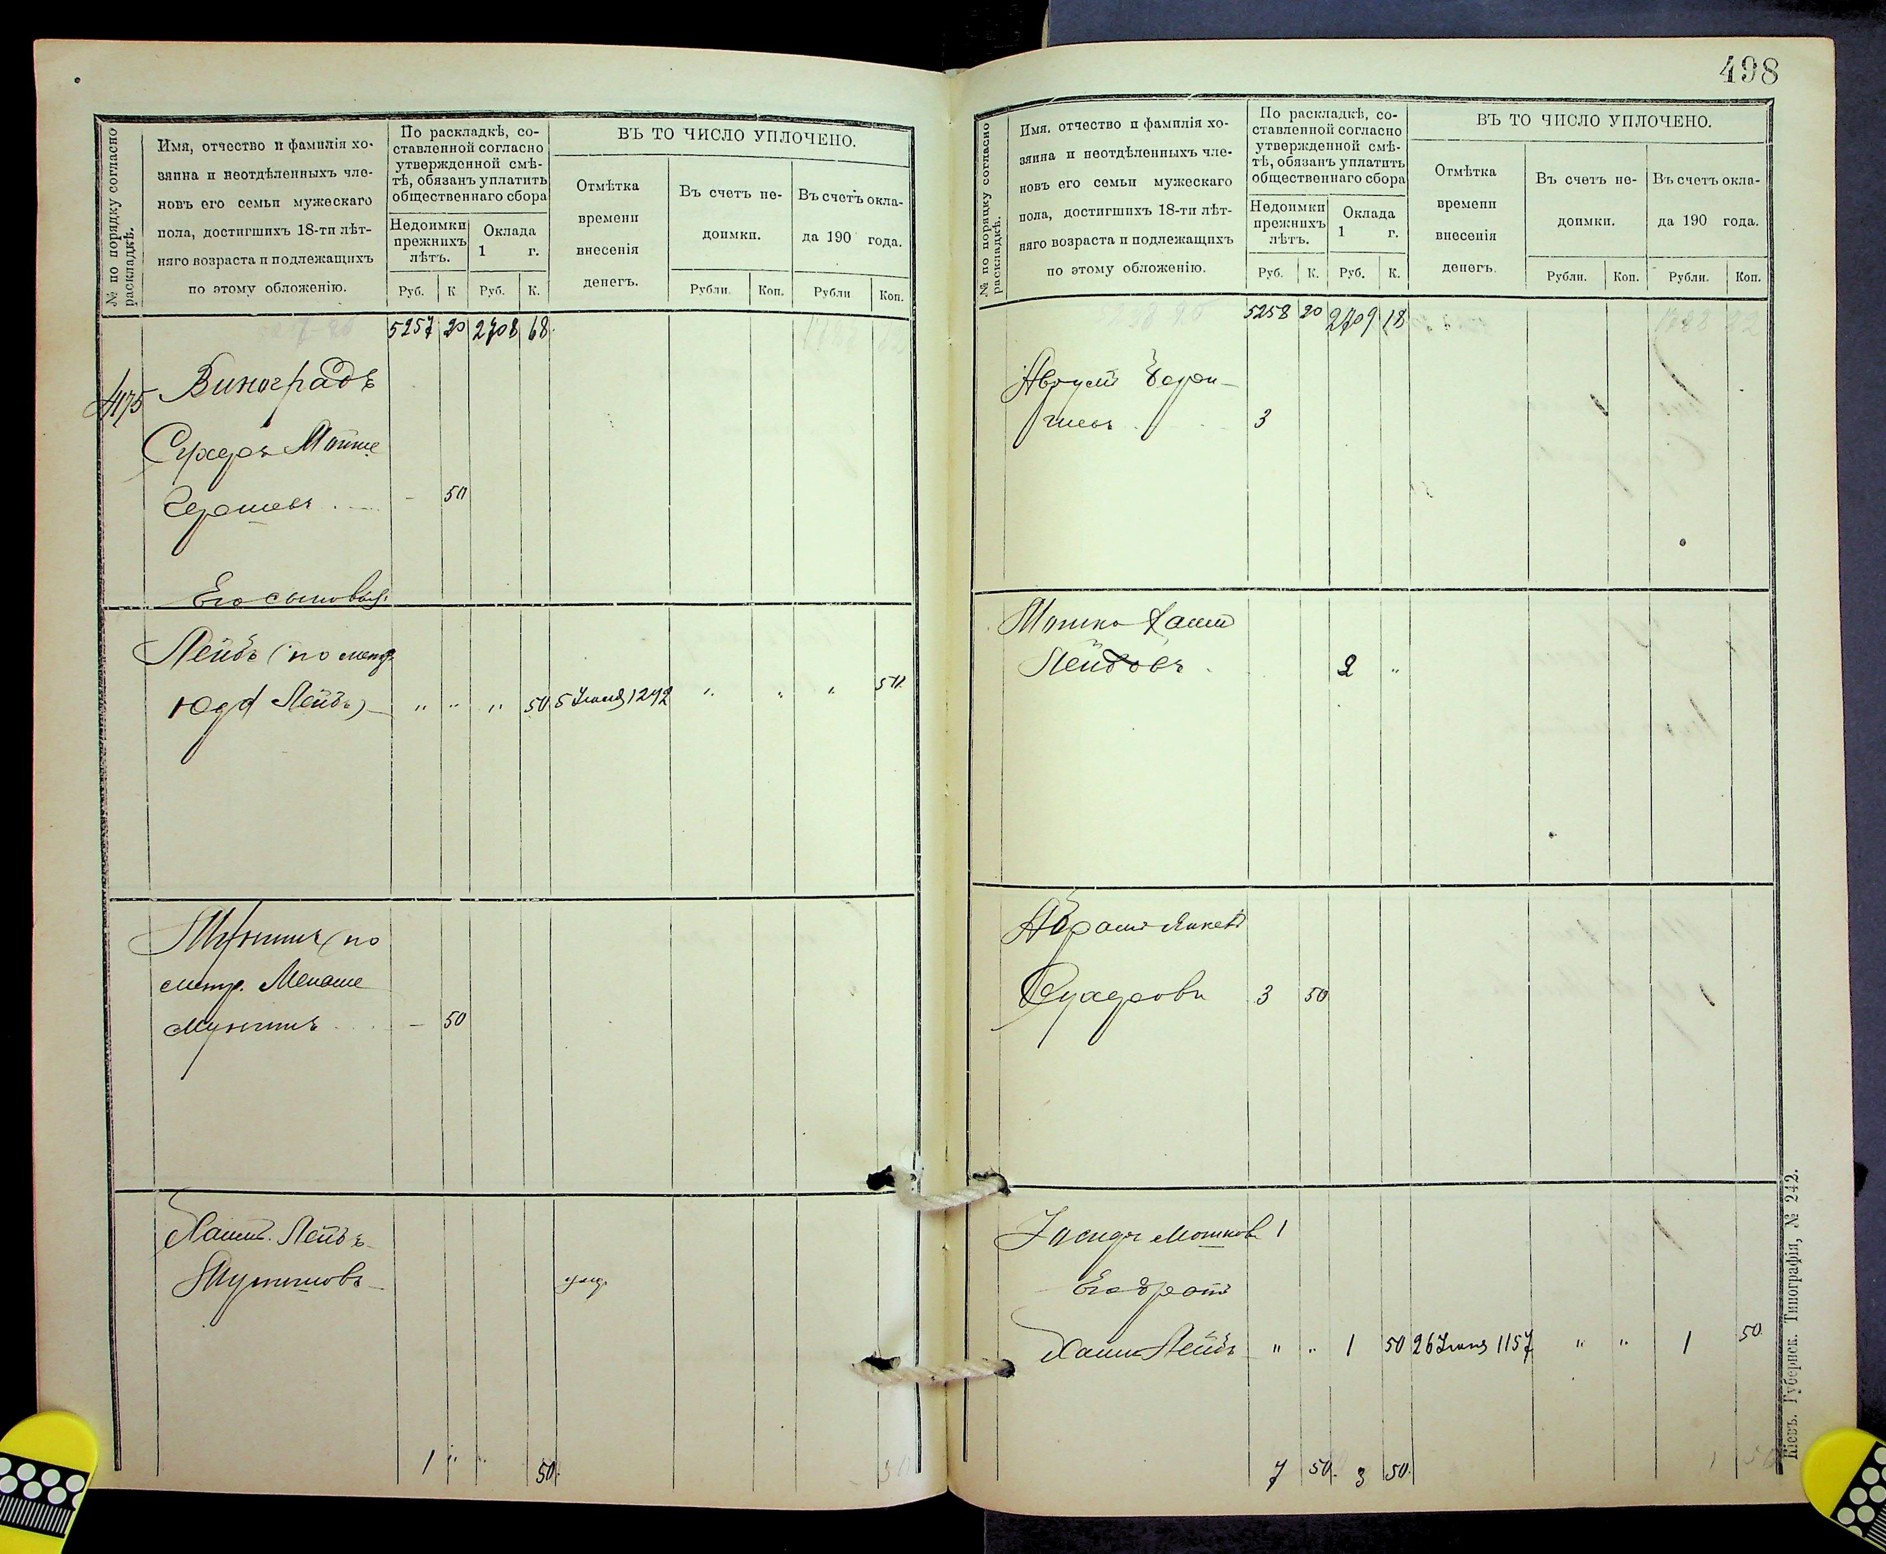 498
№ по порядку согласно раскладкѣ.
Имя, отчество и фамилія хо-
зяина и неотдѣленныхъ чле-
новъ его семьи мужескаго
пола, достигшихъ 18-ти лѣт-
няго возраста и подлежащихъ
по этому обложенію.
По раскладкѣ, со-
ставленной согласно
утвержденной смѣ-
тѣ, обязанъ уплатить
общественнаго сбора
Недоимки
прежнихъ
лѣтъ.
Оклада
1 г.
Руб. К Руб. К.
ВЪ ТО ЧИСЛО УПЛОЧЕНО.
Отмѣтка
времени
внесенія
денегъ.
Въ счетъ не-
доимки.
Рубли. Коп.
Въ счетъ окла-
да 190 года.
Рубли Коп.
5257 20 2708 68
475 Виноградъ
Сухеръ Мошко
50
Его сыновья:
Лейбъ (по метр.
Юдя Лейбъ) " " " 50 5 Іюня 1292 " " " 50
Мунишъ (по
метр. Менаше
Мунишъ - 50
Хаимъ Лейбъ
Мунишовъ
1 " " 50
№ по порядку согласно раскладкѣ.
Имя, отчество и фамилія хо-
зяина и неотдѣленныхъ чле-
новъ его семьи мужескаго
пола, достигшихъ 18-ти лѣт-
няго возраста и подлежащихъ
по этому обложенію.
По раскладкѣ, со-
ставленной согласно
утвержденной смѣ-
тѣ, обязанъ уплатить
общественнаго сбора
Недоимки
прежнихъ
лѣтъ.
Оклада
1 г.
Руб. К. Руб. К.
ВЪ ТО ЧИСЛО УПЛОЧЕНО.
Отмѣтка
времени
внесенія
денегъ.
Въ счетъ не-
доимки.
Рубли. Коп.
Въ счетъ окла-
да 190 года.
Рубли. Коп.
5258 20 2709 18
3
Мошко Хаимъ
Лейбовъ 2 "
Абрамъ Янкель
Сухеровъ 3 50
Мошков. 1
Его братъ
Хаимъ Лейбъ " " 1 50 26 Іюня 1157 " " 1 50
7 50 3 50
Кіевъ. Губернск. Типографія, № 242.